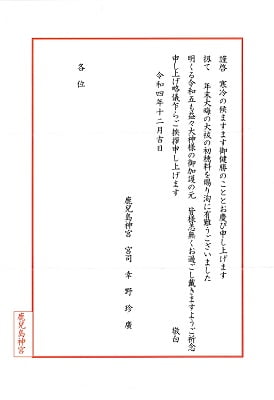 謹啓　寒冷の候ますます御健勝のこととお慶び申し上げます
扨て　年末大晦の大祓の初穂料を賜り洵に有難うございました
明くる令和五も益々大神様の御加護の元　皆様恙無くお過ごし戴きますようご祈念
申し上げ略儀乍らご挨拶申し上げます
敬白
令和四年十二月吉日
鹿兒島神宮　宮司　幸野珍廣
各位
鹿兒島神宮